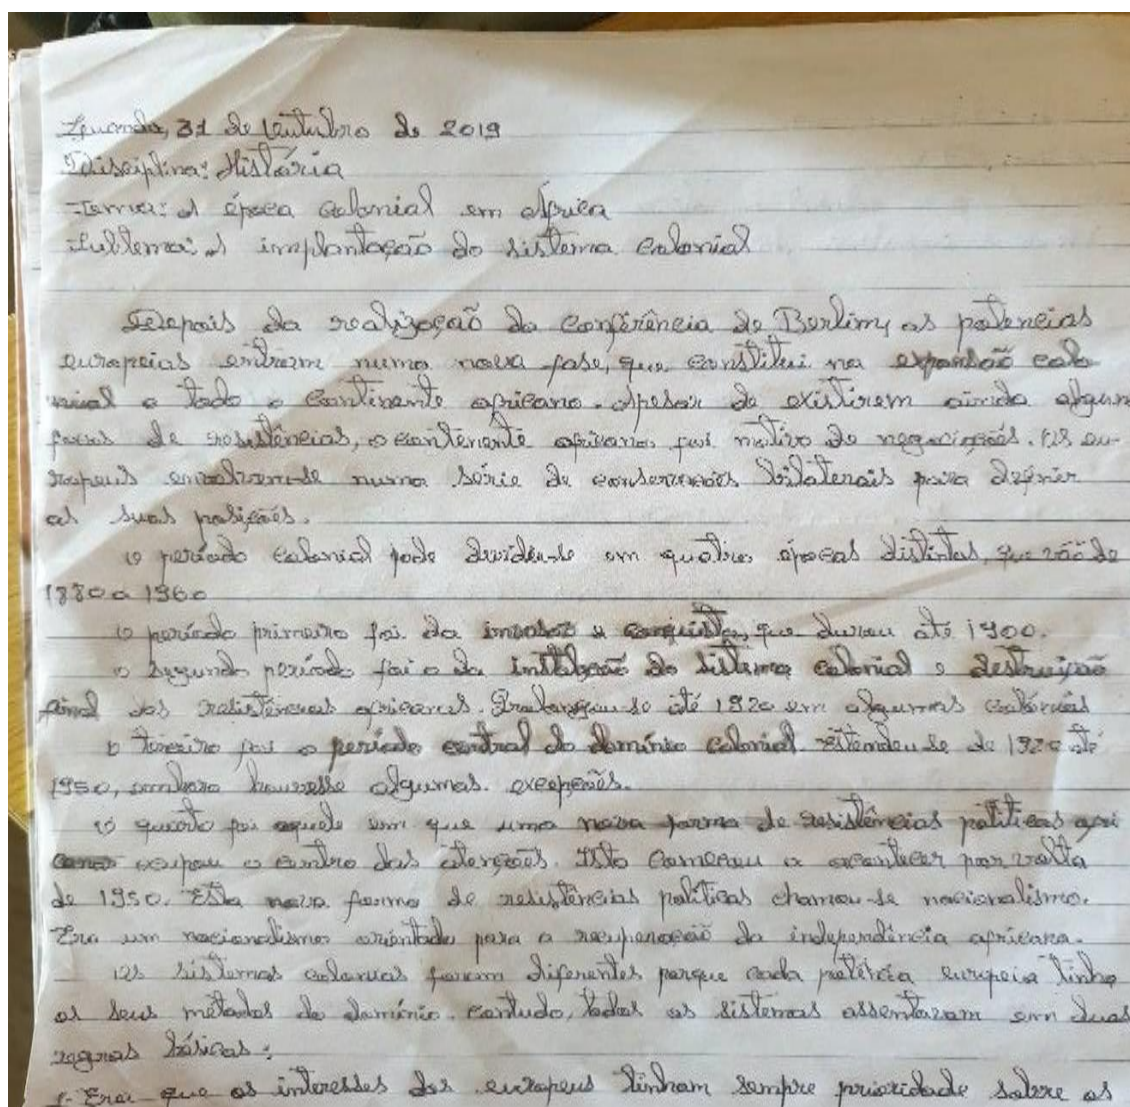 Luanda, 31 de Outubro de 2019
Disciplina: História
Tema: A época colonial em África
Subtema: A implantação do sistema colonial
Depois da realização da Conferência de Berlim, as potencias
europeias entram numa nova fase, que constitui na expansão colo
nial a todo o continente africano. Apesar de existirem ainda algun
focos de resistências, o continente africano foi motivo de negociações. Os eu-
ropeus envolvem-se numa série de conservações bilaterais para definir
as suas posições.
O período colonial pode dividir-se em quatro épocas distintas, que vão de
1880 a 1960
O período primeiro foi da invasão e conquista, que durou até 1900.
O segundo período foi o da instalação do sistema colonial e destruição
final das resistências africanas. Prolongou-se até 1920 em algumas colónias
O terceiro foi o período central do domínio colonial. Estendeu-se de 1920 até
1950, embora houvesse algumas. excepções.
O quarto foi aquele em que uma nova forma de resistências políticas afri
canas ocupou o centro das atenções. Isto começou a acontecer por volta
de 1950. Esta nova forma de resistências políticas chamou-se nacionalismo.
Era um nacionalismo orientado para a recuperação da independência africana.
Os sistemas coloniais foram diferentes porque cada potência europeia tinha
os seus métodos de domínio. Contudo, todos os sistemas assentavam em duas
regras básicas:
1- Era que os interesses dos europeus tinham sempre prioridade sobre os